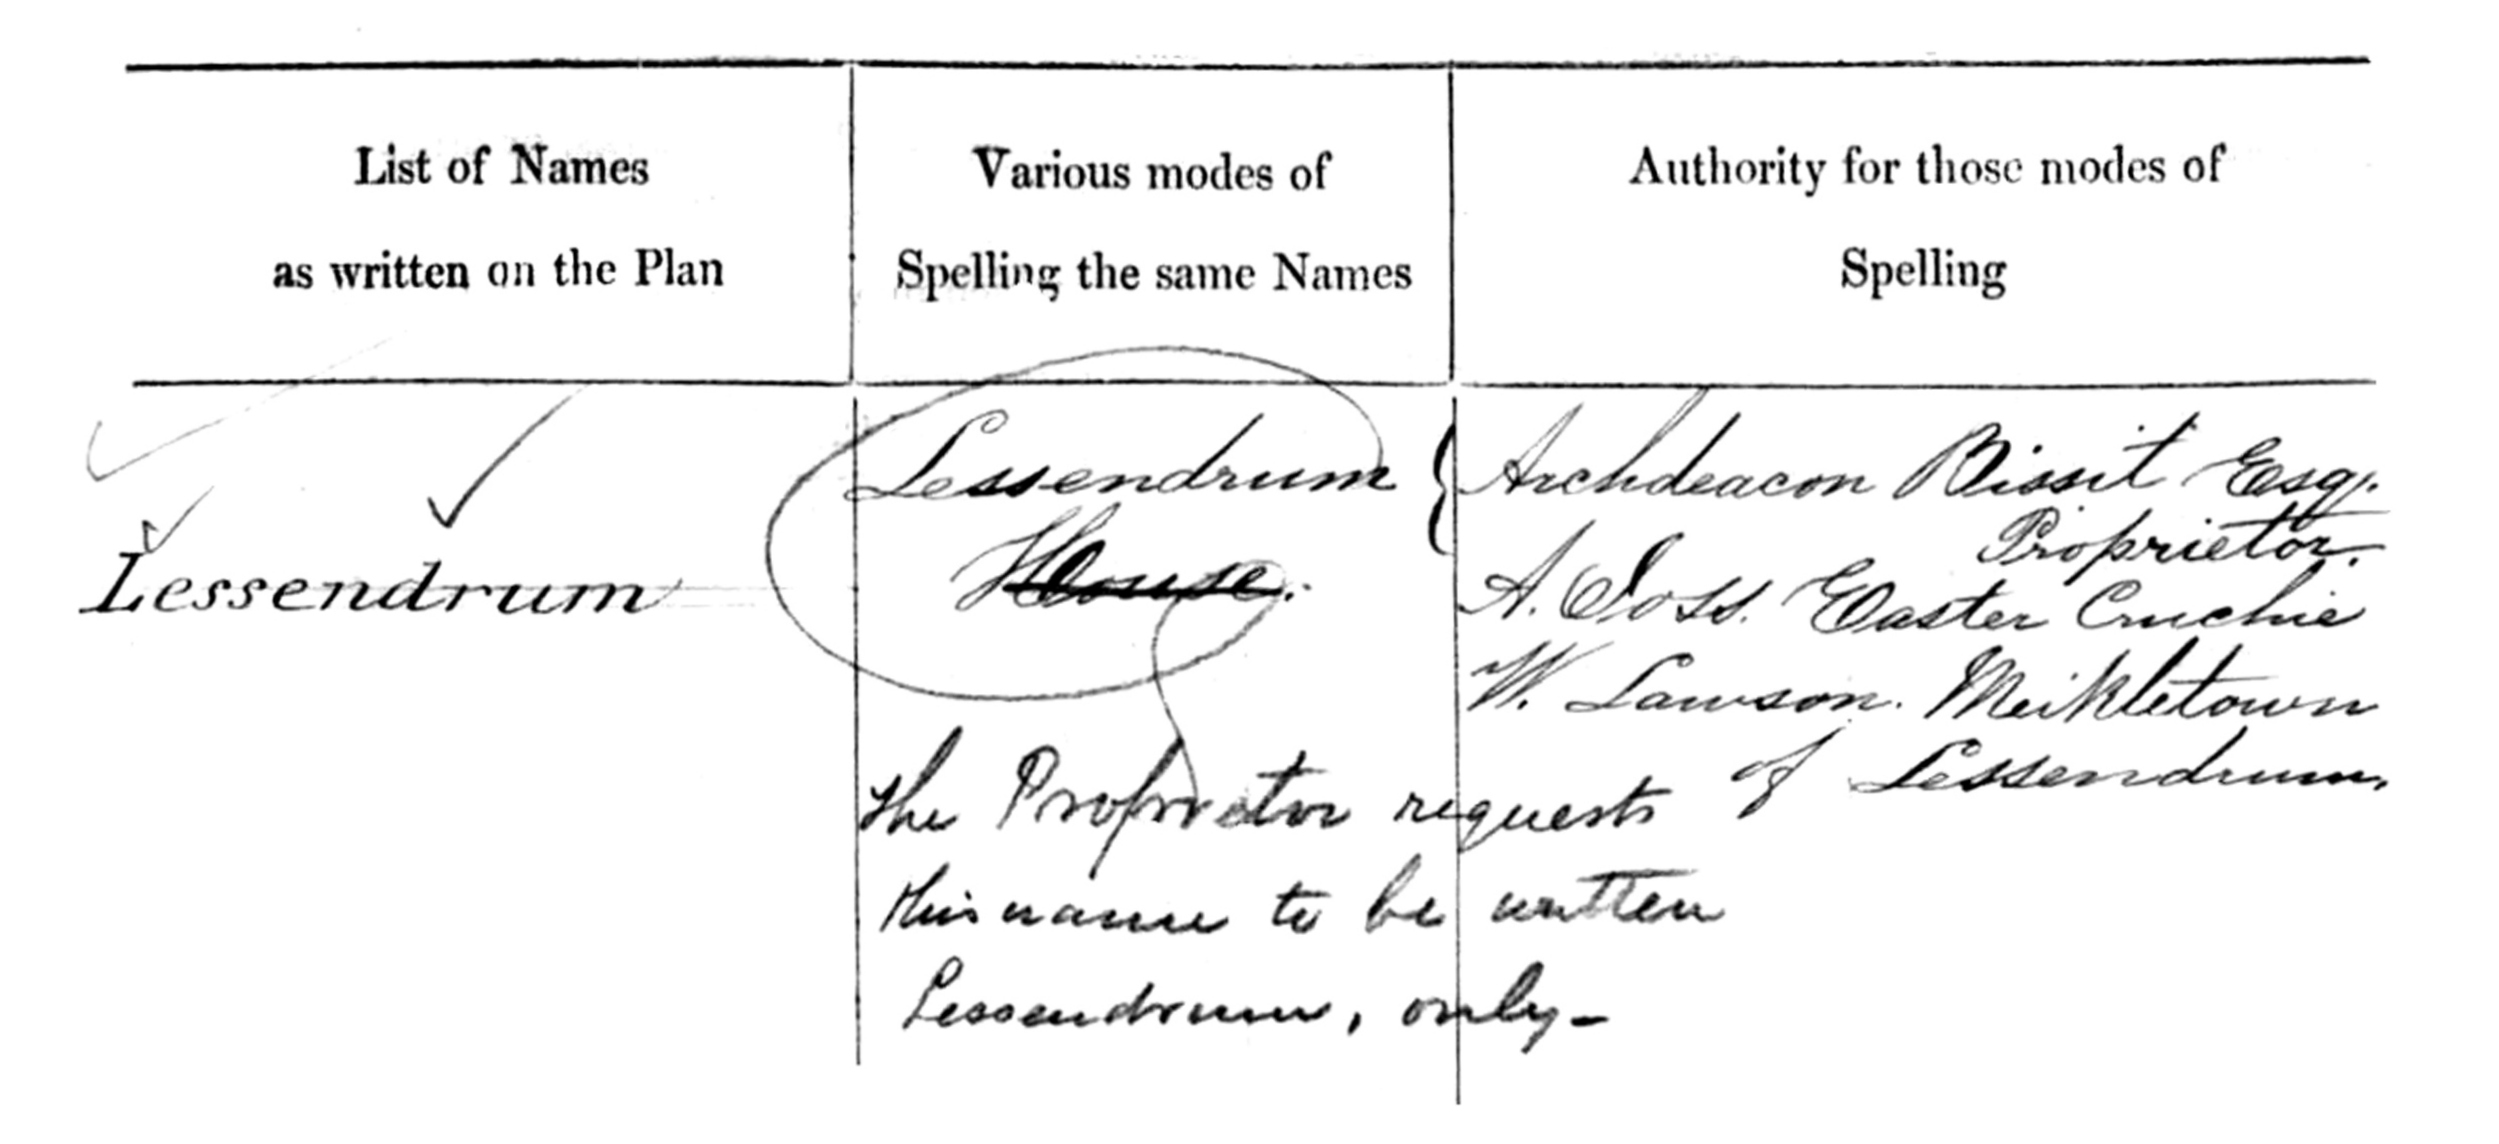 List of Names
as written on the Plan
Various modes of
Spelling the same Names
Authority for those modes of
Spelling
Lessendrum
Lessendrum
House.
the Proprietor requests
this name to be written
Lessendrum, only-
Archdeacon Bissit Esqr.
Proprietor.
A. Easter Cruchie
W. Lawson. Meikletown
of Lessendrum.